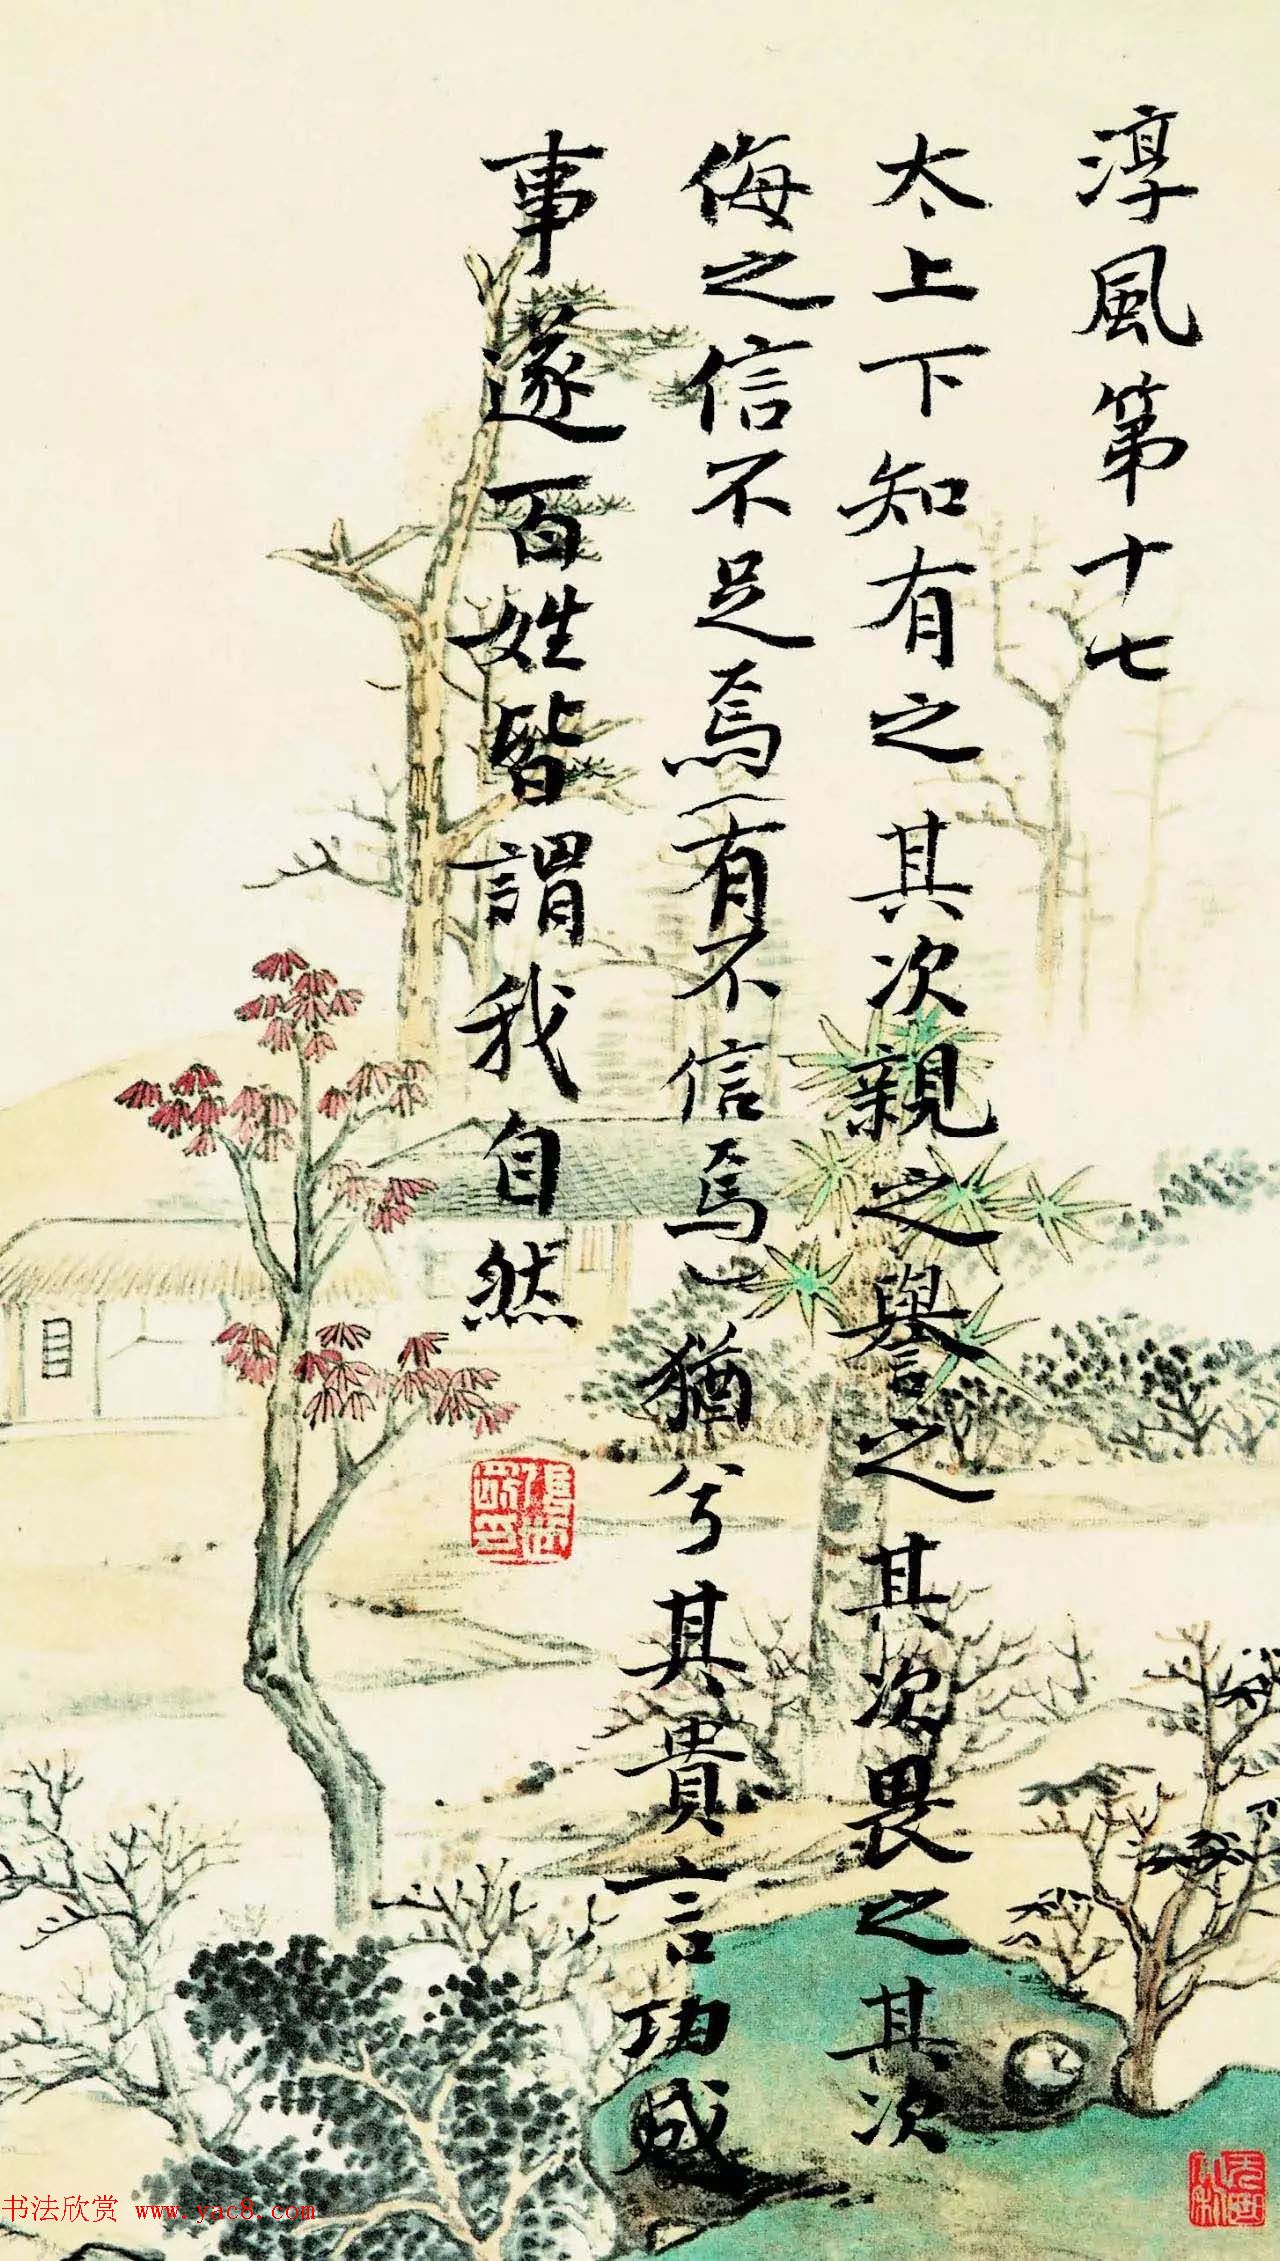 淳風第十七
太上下知有之其次親之譽之其次畏之其次
侮之信不足焉(有不信焉)猶兮其貴言功成
事遂百姓皆謂我自然
书法欣赏 www.yac8.com